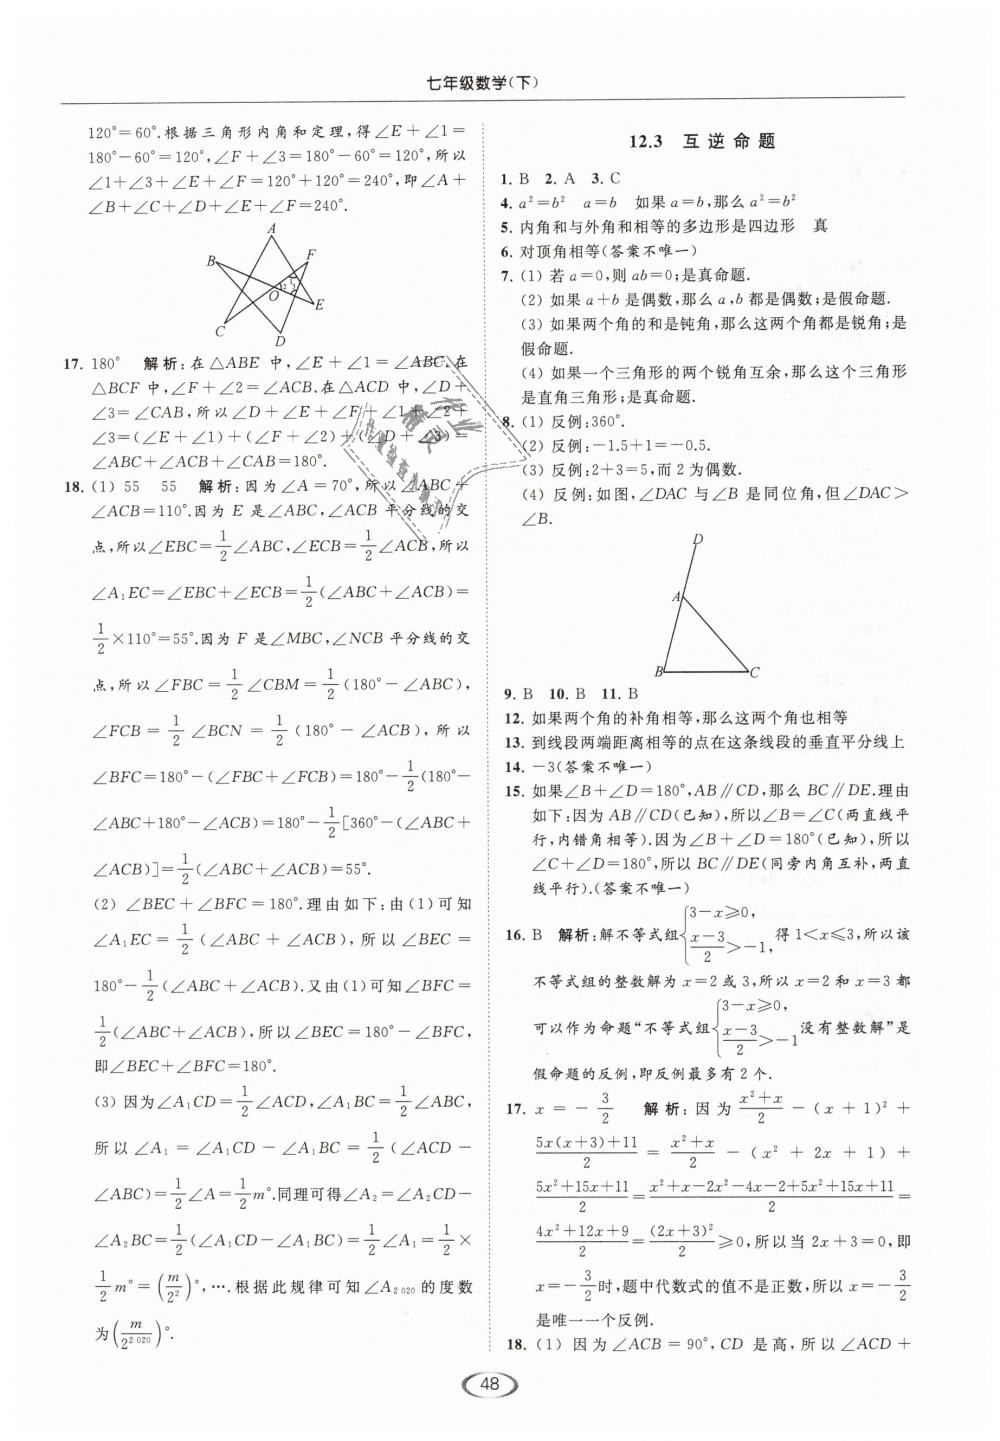 七年级数学(下)
120°=60°.根据三角形内角和定理,得∠E+∠1=
180°-60°=120°,∠F+∠3=180°-60°=120°,所以
∠1+∠3+∠E+∠F=120°+120°=240°,即∠A+
∠B+∠C+∠D+∠E+∠F=240°.
A
B
F
O
1
2
3
E
C
D
17. 180° 解析:在△ABE 中,∠E+∠1=∠ABC.在
△BCF 中,∠F+∠2=∠ACB.在△ACD 中,∠D+
∠3=∠CAB,所以∠D+∠E+∠F+∠1+∠2+
∠3=(∠E+∠1)+(∠F+∠2)+(∠D+∠3)=
∠ABC+∠ACB+∠CAB=180°.
18. (1) 55 55 解析:因为∠A=70°,所以∠ABC+
∠ACB=110°.因为 E 是∠ABC,∠ACB 平分线的交
点,所以∠EBC=1/2∠ABC,∠ECB=1/2∠ACB,所以
∠A₁EC=∠EBC+∠ECB=1/2(∠ABC+∠ACB)=
1/2×110°=55°.因为 F 是∠MBC,∠NCB 平分线的交
点,所以∠FBC=1/2∠CBM=1/2(180°-∠ABC),
∠FCB=1/2∠BCN=1/2(180°-∠ACB),所以
∠BFC=180°-(∠FBC+∠FCB)=180°-1/2(180°-
∠ABC+180°-∠ACB)=180°-1/2[360°-(∠ABC+
∠ACB)]=1/2(∠ABC+∠ACB)=55°.
(2) ∠BEC+∠BFC=180°.理由如下:由(1)可知
∠A₁EC=1/2(∠ABC+∠ACB),所以∠BEC=
180°-1/2(∠ABC+∠ACB).又由(1)可知∠BFC=
1/2(∠ABC+∠ACB),所以∠BEC=180°-∠BFC,
即∠BEC+∠BFC=180°.
(3) 因为∠A₁CD=1/2∠ACD,∠A₁BC=1/2∠ABC,
所以∠A₁=∠A₁CD-∠A₁BC=1/2(∠ACD-
∠ABC)=1/2∠A=1/2m°.同理可得∠A₂=∠A₂CD-
∠A₂BC=1/2(∠A₁CD-∠A₁BC)=1/2∠A₁=1/2×
1/2m°=(m/2²)°,….根据此规律可知∠A₂₀₂₀的度数
为(m/2²⁰²⁰)°.
12.3 互逆命题
1. B 2. A 3. C
4. a²=b² a=b 如果a=b,那么a²=b²
5. 内角和与外角和相等的多边形是四边形 真
6. 对顶角相等(答案不唯一)
7. (1) 若a=0,则ab=0;是真命题.
(2) 如果a+b是偶数,那么a,b都是偶数;是假命题.
(3) 如果两个角的和是钝角,那么这两个角都是锐角;是
假命题.
(4) 如果一个三角形的两个锐角互余,那么这个三角形
是直角三角形;是真命题.
8. (1) 反例:360°.
(2) 反例:-1.5+1=-0.5.
(3) 反例:2+3=5,而2为偶数.
(4) 反例:如图,∠DAC 与∠B 是同位角,但∠DAC>
∠B.
D
A
B
C
9. B 10. B 11. B
12. 如果两个角的补角相等,那么这两个角也相等
13. 到线段两端距离相等的点在这条线段的垂直平分线上
14. -3(答案不唯一)
15. 如果∠B+∠D=180°,AB∥CD,那么 BC∥DE.理由
如下:因为 AB∥CD(已知),所以∠B=∠C(两直线平
行,内错角相等).因为∠B+∠D=180°(已知),所以
∠C+∠D=180°,所以 BC∥DE(同旁内角互补,两直
线平行).(答案不唯一)
16. B 解析:解不等式组{3-x≥0, (x-3)/2>-1, 得1<x≤3,所以该
不等式组的整数解为x=2或3,所以x=2和x=3都
可以作为命题“不等式组{3-x≥0, (x-3)/2>-1 没有整数解”是
假命题的反例,即反例最多有2个.
17. x=-3/2 解析:因为(x²+x)/2-(x+1)²+
(5x(x+3)+11)/2=(x²+x)/2-(x²+2x+1)+
(5x²+15x+11)/2=(x²+x-2x²-4x-2+5x²+15x+11)/2=
(4x²+12x+9)/2=(2x+3)²/2≥0,所以当2x+3=0,即
x=-3/2时,题中代数式的值不是正数,所以x=-3/2
是唯一一个反例.
18. (1) 因为∠ACB=90°,CD是高,所以∠ACD+
48